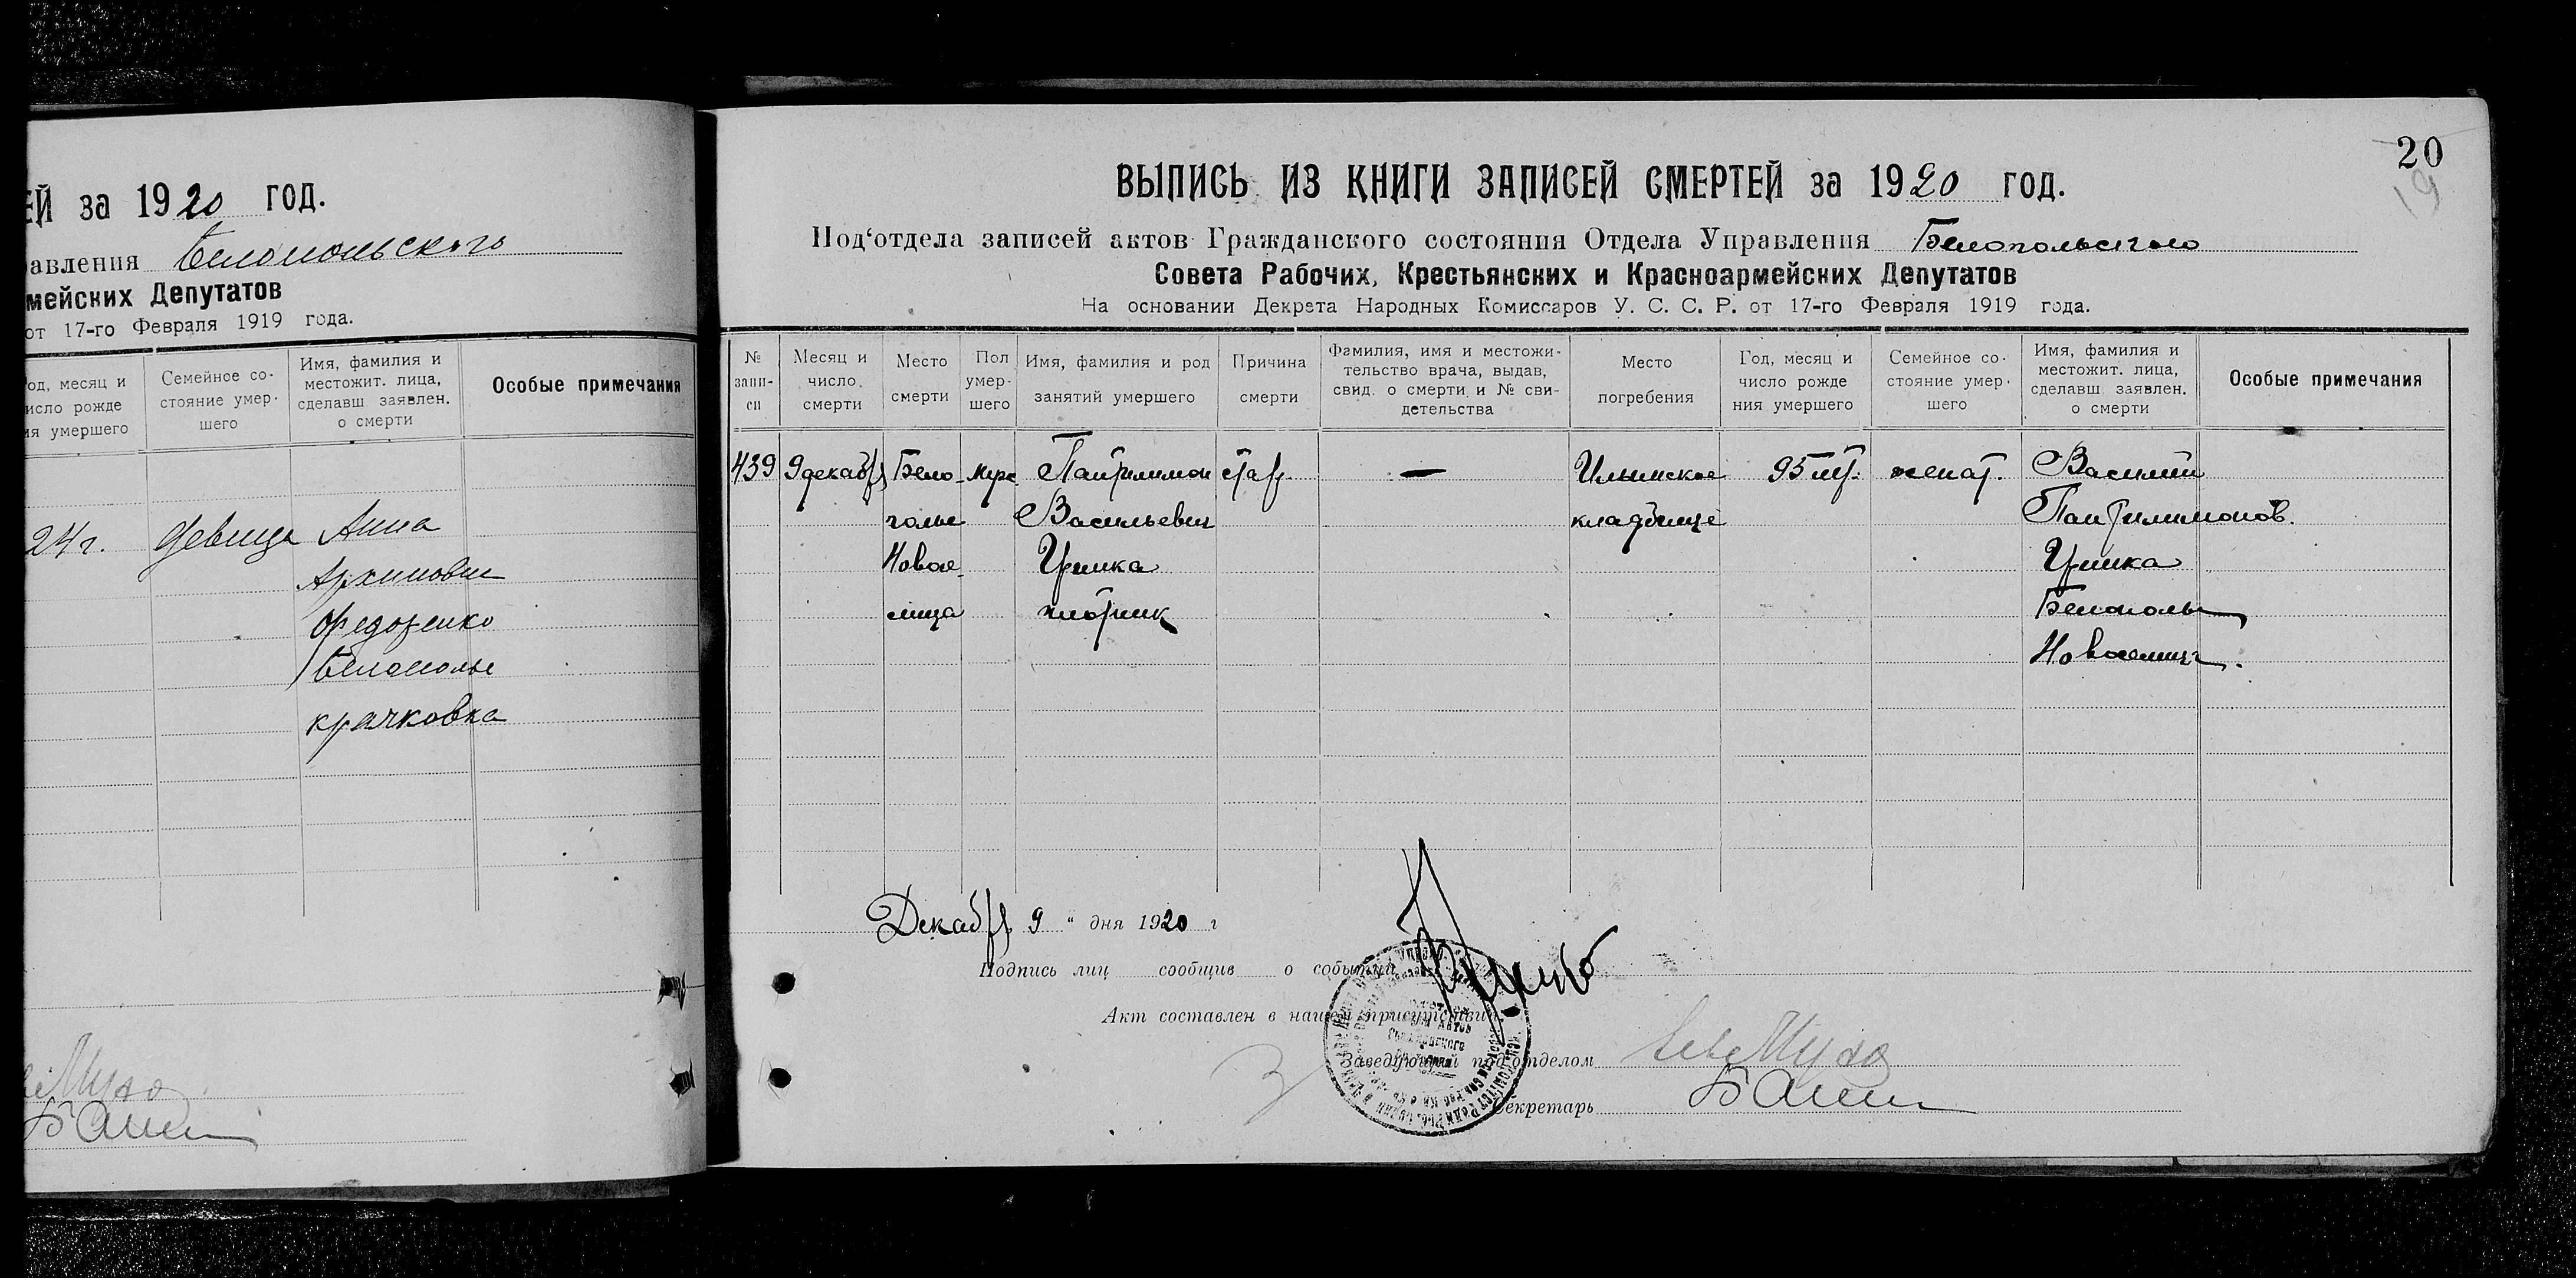 ЕЙ за 1920 год.
авления Белопольского
мейских Депутатов
от 17-го Февраля 1919 года.
од, месяц и
исло рожде
ия умершего
Семейное со-
стояние умер-
шего
Имя, фамилия и
местожит. лица,
сделавш заявлен.
о смерти
Особые примечания
24 г. девица Анна
Архиповна
Федоренко
Белополье
крячковка
20
19
ВЫПИСЬ ИЗ КНИГИ ЗАПИСЕЙ СМЕРТЕЙ за 1920 год.
Под‘отдела записей актов Гражданского состояния Отдела Управления Белопольского
Совета Рабочих, Крестьянских и Красноармейских Депутатов
На основании Декрета Народных Комиссаров У. С. С. Р. от 17-го Февраля 1919 года.
№
запи-
си
Месяц и
число
смерти
Место
смерти
Пол
умер-
шего
Имя, фамилия и род
занятий умершего
Причина
смерти
Фамилия, имя и местожи-
тельство врача, выдав,
свид. о смерти и № сви-
детельства
Место
погребения
Год, месяц и
число рожде
ния умершего
Семейное со-
стояние умер-
шего
Имя, фамилия и
местожит. лица,
сделавш заявлен.
о смерти
Особые примечания
439 9 декабр Бело- муж Пантилимон стар. — Ильинское 95 лет. женат. Василий
полье Васильевич кладбище Пантилимонов.
Новосе- Цринка
лица плотник Белополье
Новоселица.
Декабр 9 " дня 1920 г
Подпись лиц сообщив о событии
Акт составлен в нашем присутствии.
Заведующий под отделом
Секретарь